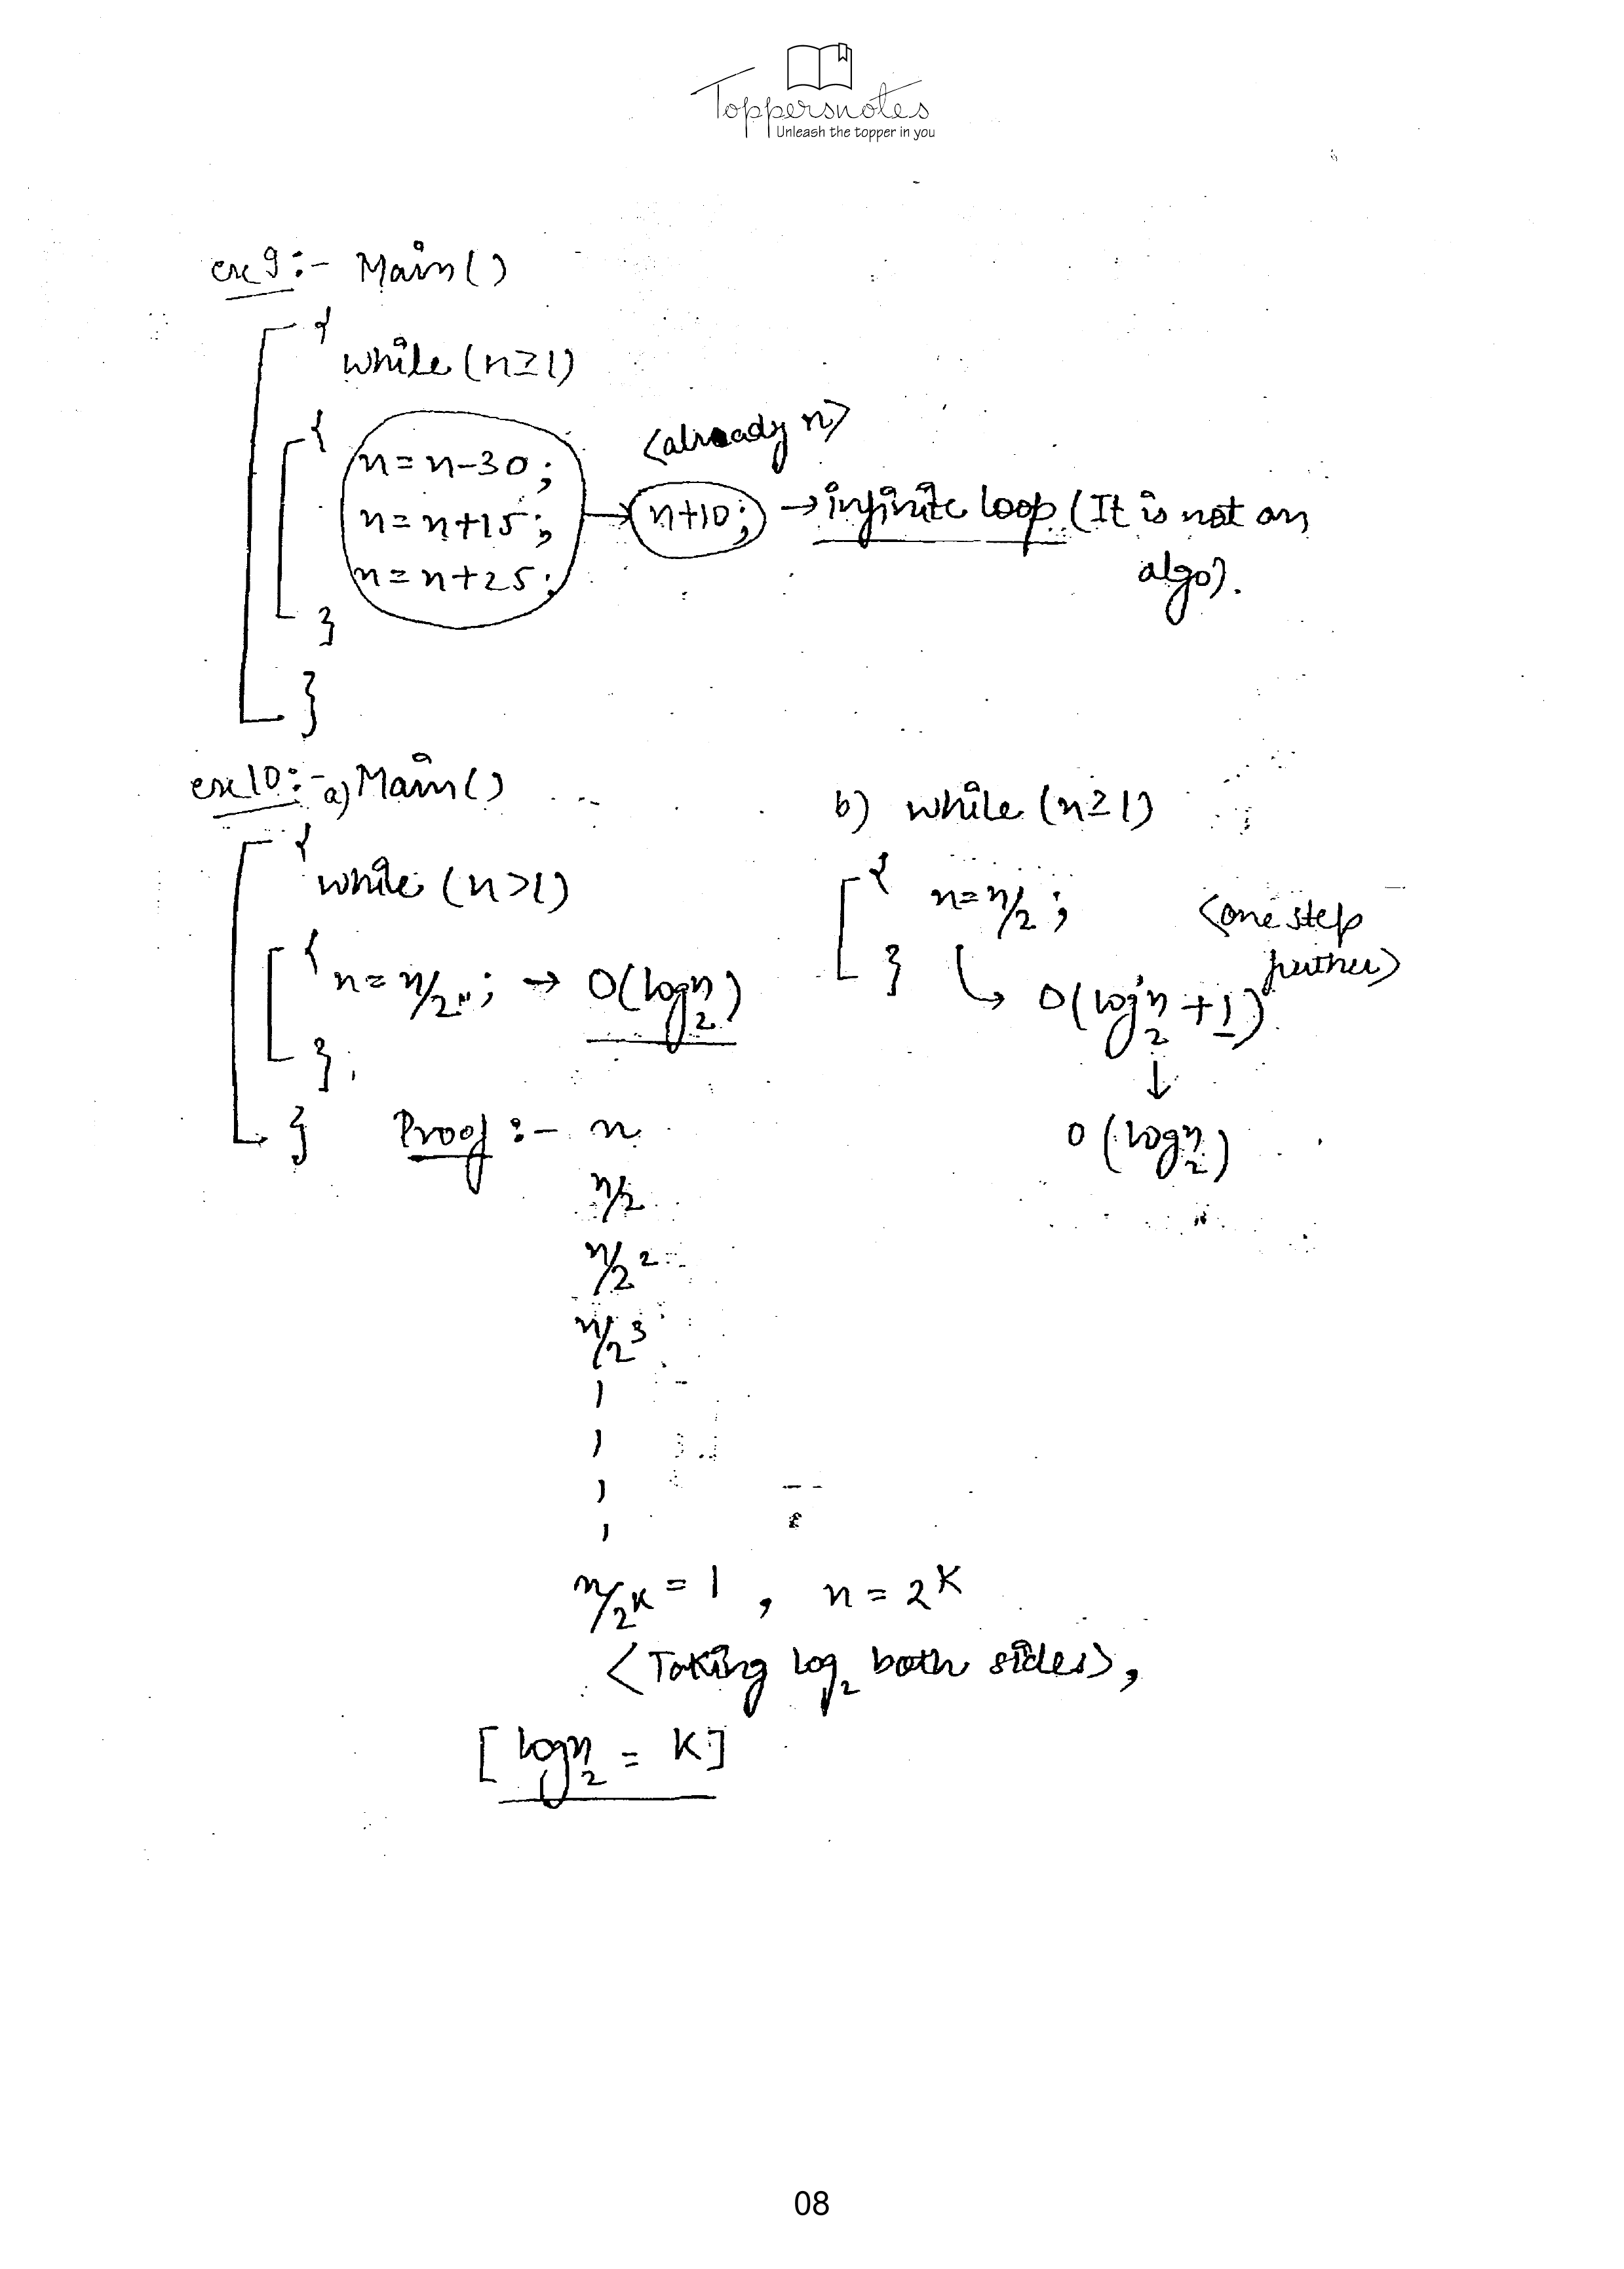 Toppersnotes
Unleash the topper in you
ex 9:- Main()
{
while (n≥1)
{
n=n-30;
n=n+15;
n=n+25;
→ n+10; <already n> → infinite loop (It is not an
algo).
}
}
ex 10:- a) Main()
{
while (n>1)
{
n=n/2; → O(log₂n)
}
}
Proof:- n
n/2
n/2²
n/2³
n/2ᴷ = 1 , n = 2ᴷ
<Taking log₂ both sides>,
[log₂n = K]
b) while (n≥1)
{
n=n/2;
}
→ O(log₂n + 1) <one step
further>
↓
O(log₂n)
08